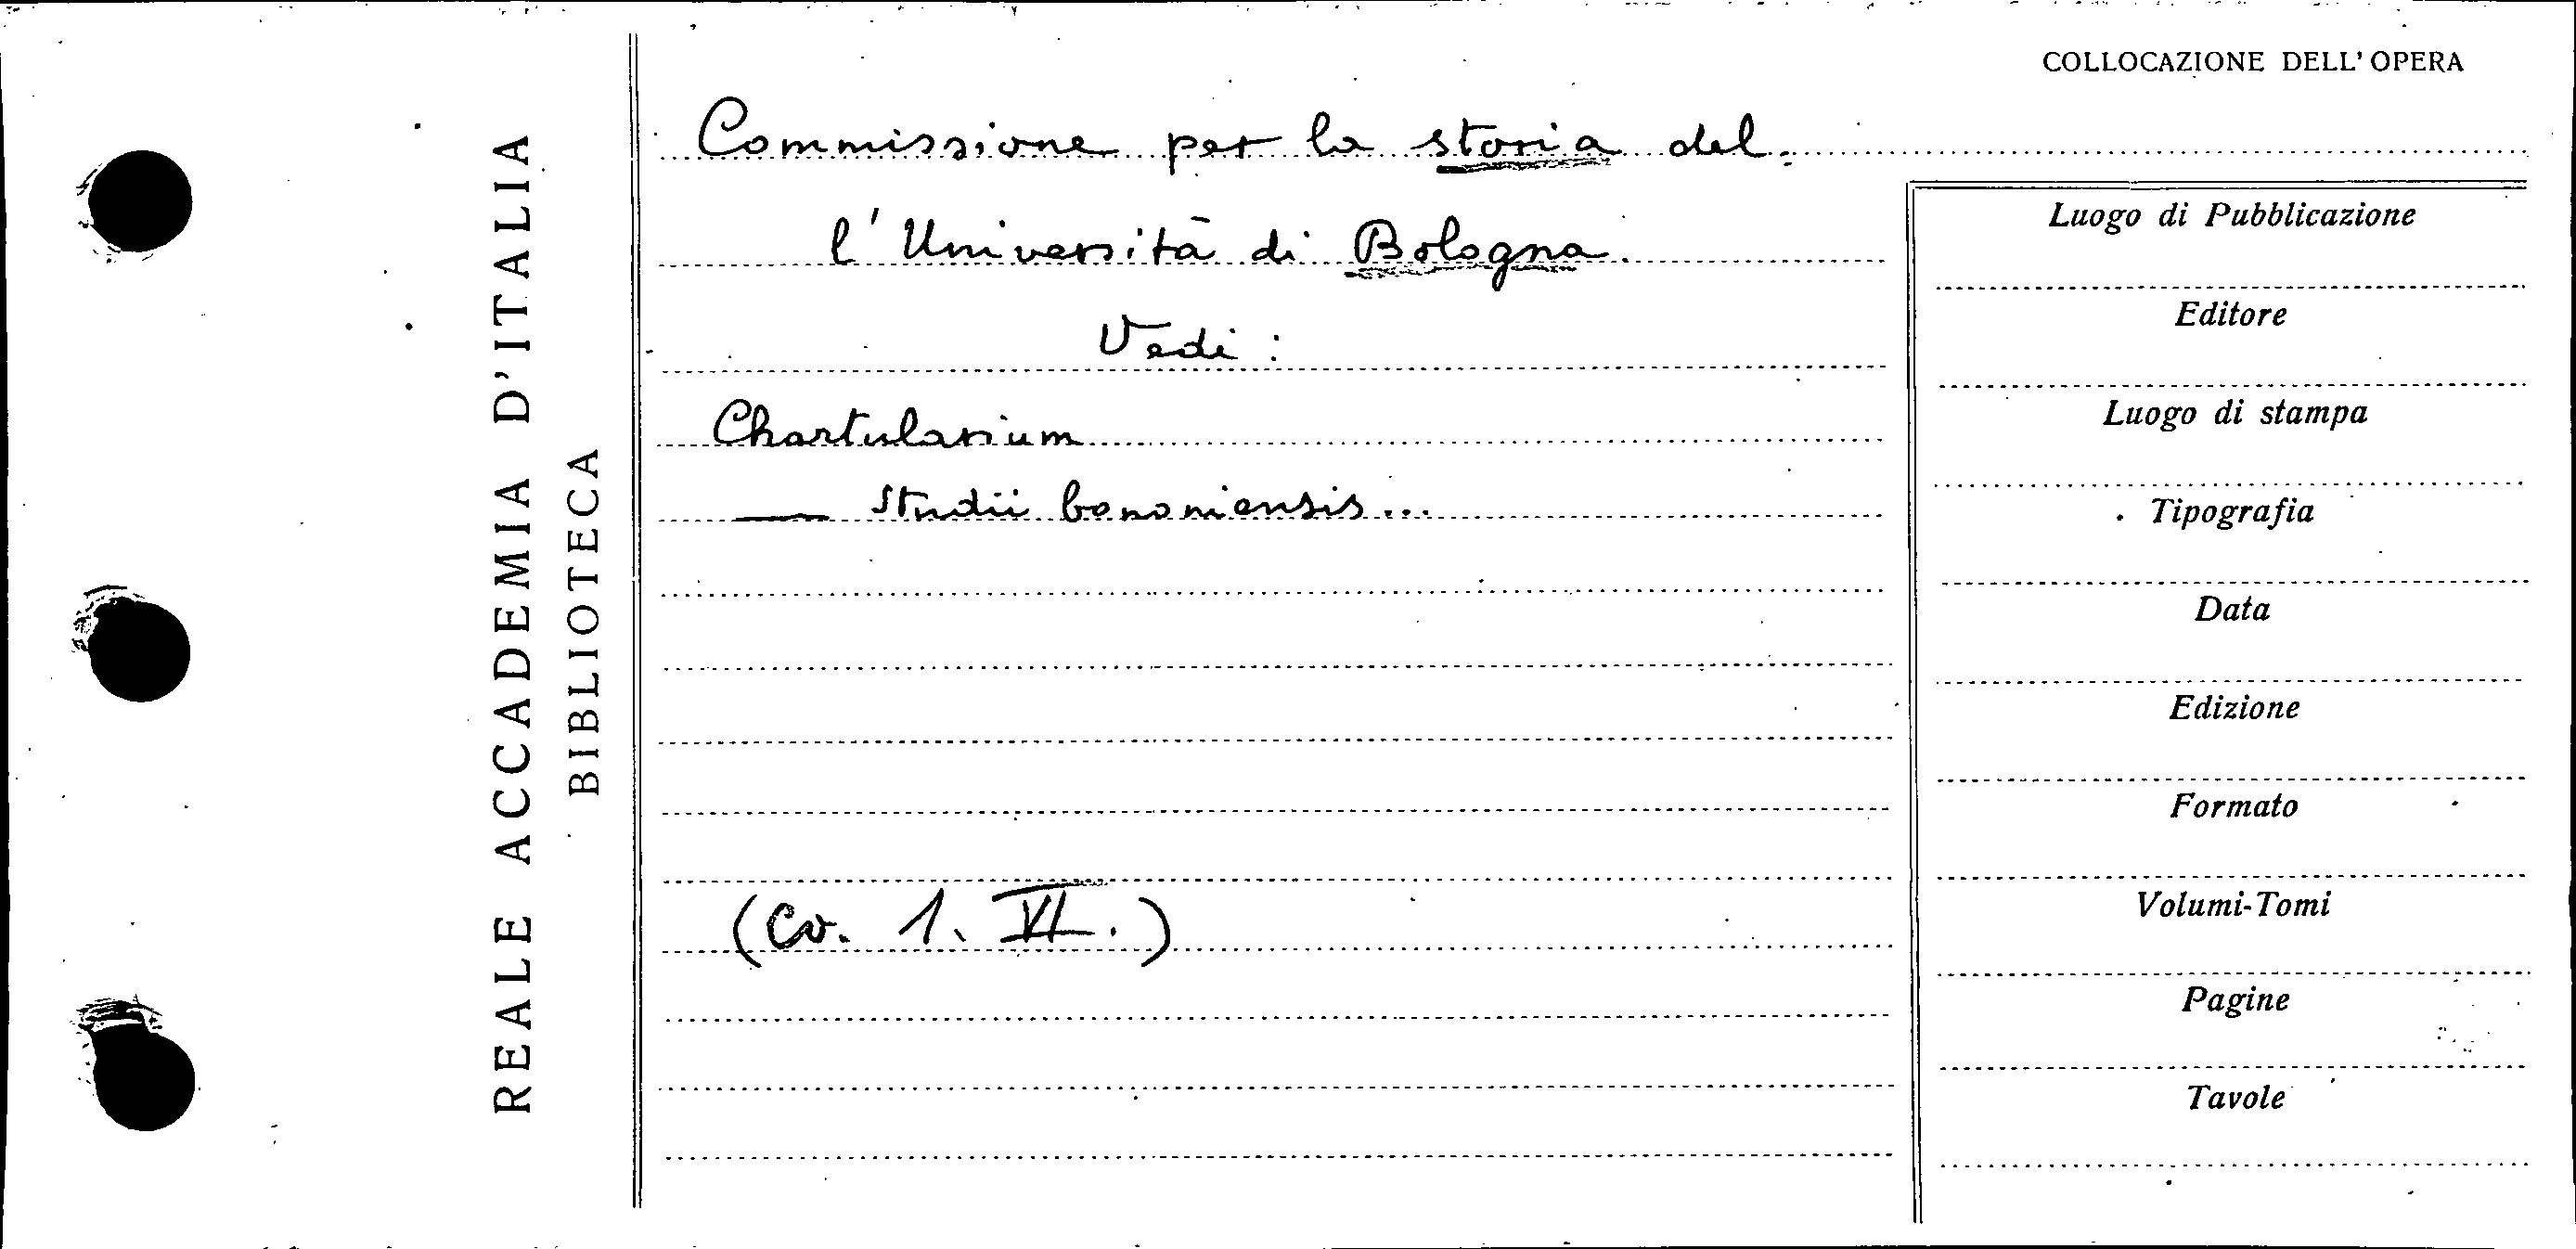 REALE ACCADEMIA D'ITALIA
BIBLIOTECA
COLLOCAZIONE DELL'OPERA
Commissione per la storia del-
l'Università di Bologna.
Vedi:
Chartularium
— Studii bononiensis...
(Cv. 1. VI.)
Luogo di Pubblicazione
Editore
Luogo di stampa
Tipografia
Data
Edizione
Formato
Volumi-Tomi
Pagine
Tavole